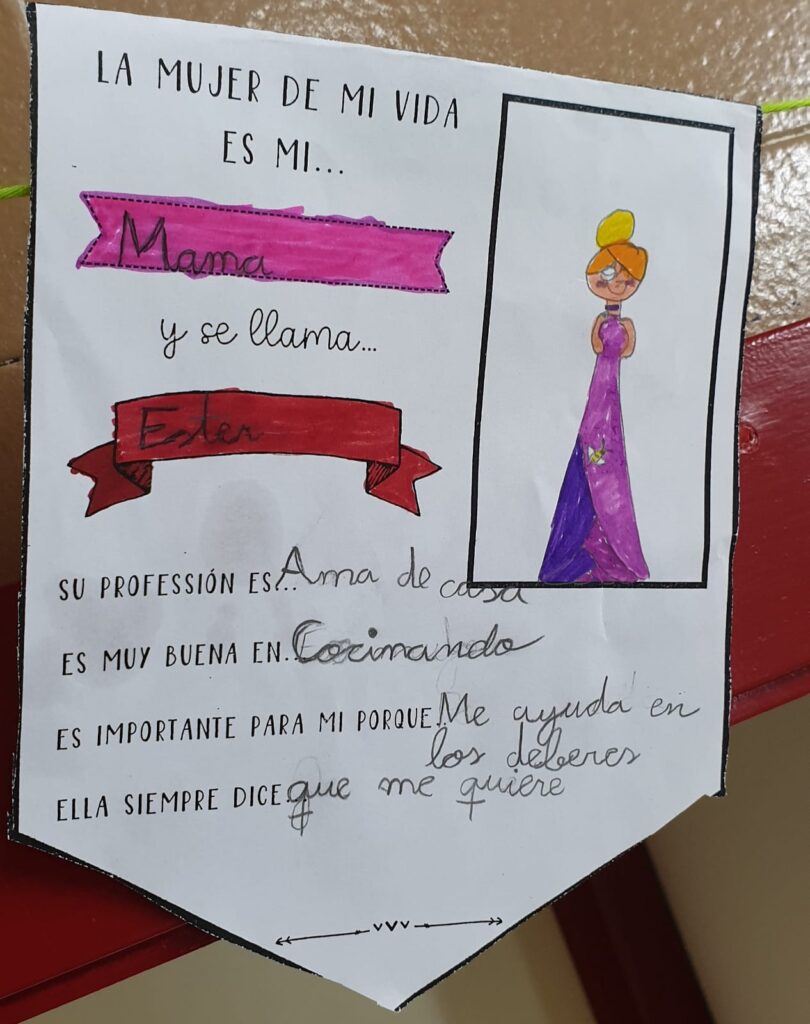 LA MUJER DE MI VIDA
ES MI...
Mama
y se llama...
Ester
SU PROFESSIÓN ES... Ama de casa
ES MUY BUENA EN... Cocinando
ES IMPORTANTE PARA MI PORQUE... Me ayuda en
los deberes
ELLA SIEMPRE DICE... que me quiere